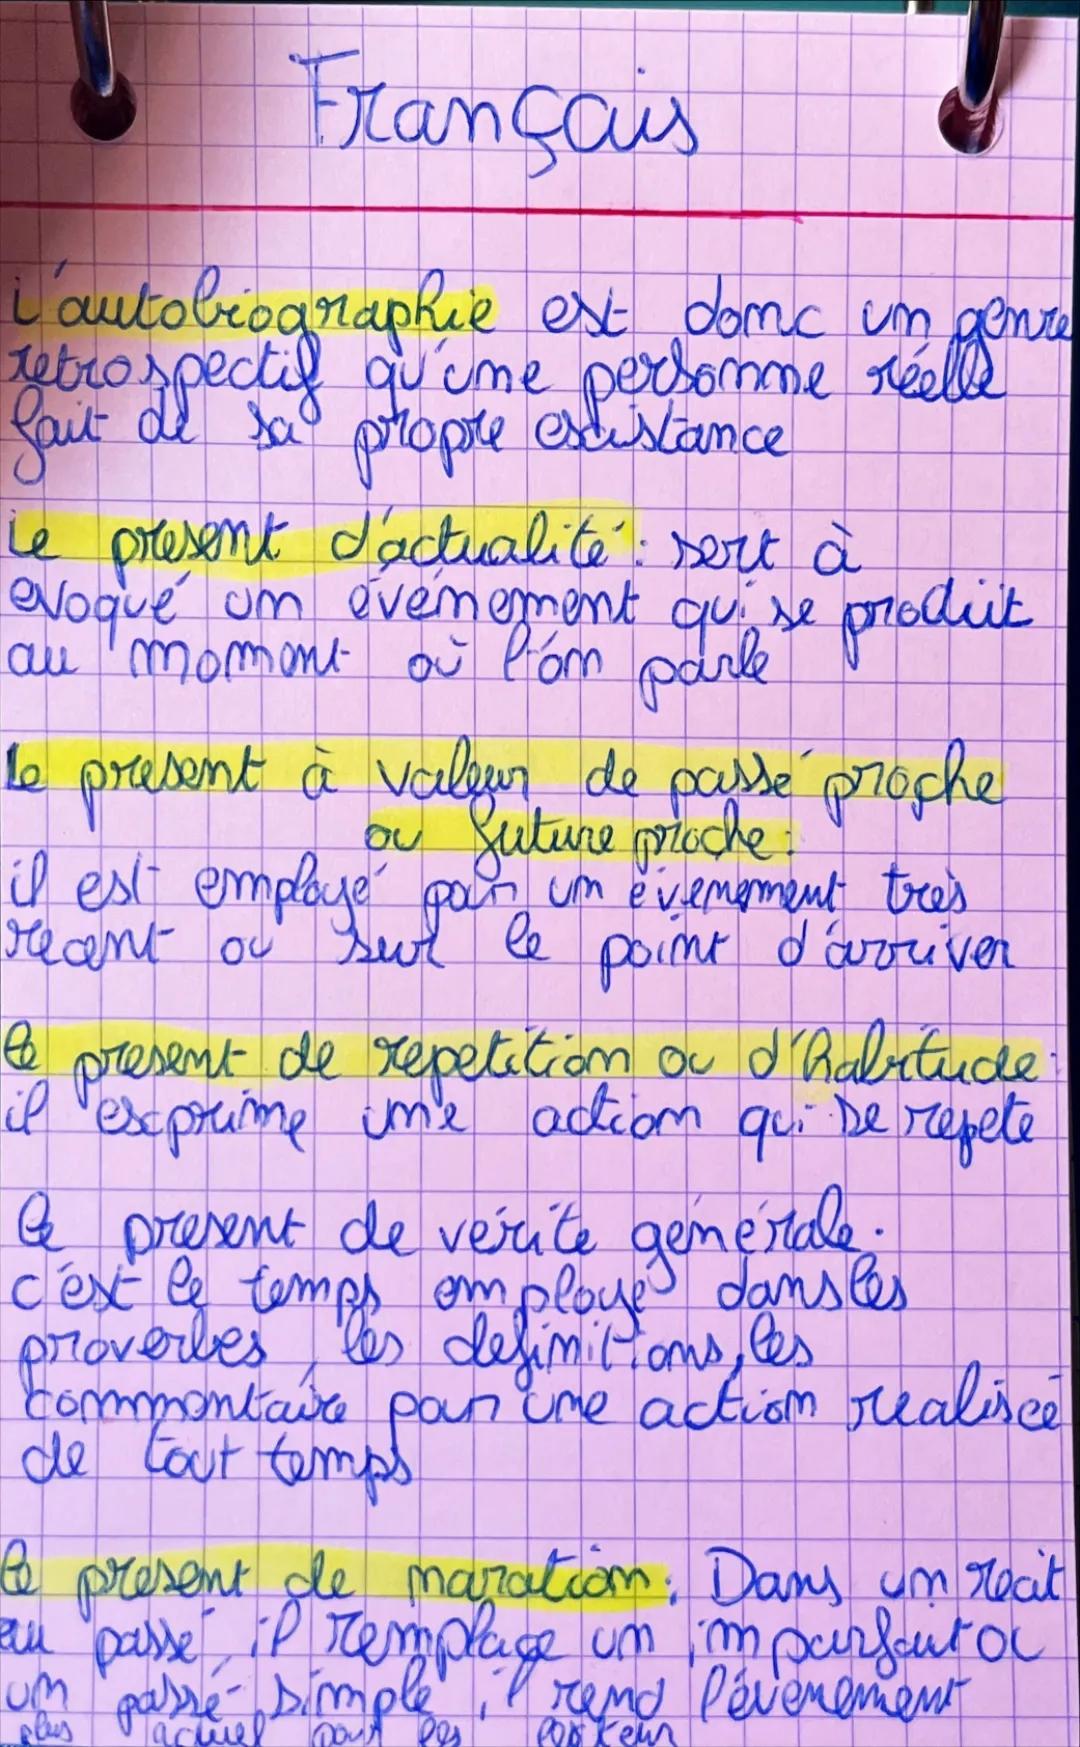 Français
L'autobiographie est donc un genre
retrospectif qu'une personne réelle
fait de sa propre existance
Le present d'actualité : sert à
evoqué un événement qui se produit
au moment où l'on parle
Le present à valeur de passé proche
ou future proche :
il est employé par un évenement très
recent ou sur le point d'arriver
Le present de repetition ou d'habitude :
il exprime une action qui se repete
Le present de vérité générale.
c'est le temps employé dans les
proverbes, les definitions, les
commentaire par une action realiseé
de tout temps
Le present de naration : Dans un récit
au passé, il remplace un imparfait ou
un passé simple, il rend l'évenement
plus actuel pour les lecteur